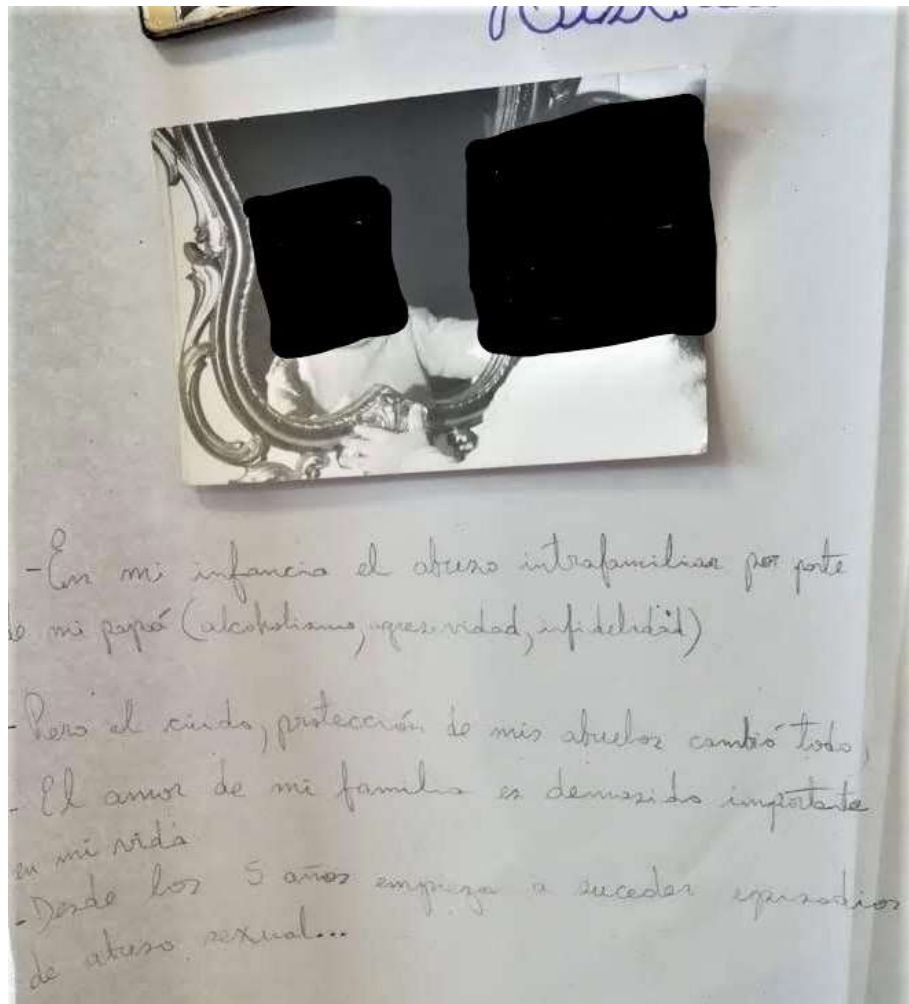 - En mi infancia el abuso intrafamiliar por parte
de mi papá (alcoholismo, agresividad, infidelidad)
- Pero el cuido, protección de mis abuelos cambió todo,
- El amor de mi familia es demasiado importante
en mi vida
- Desde los 5 años empieza a suceder episodios
de abuso sexual...